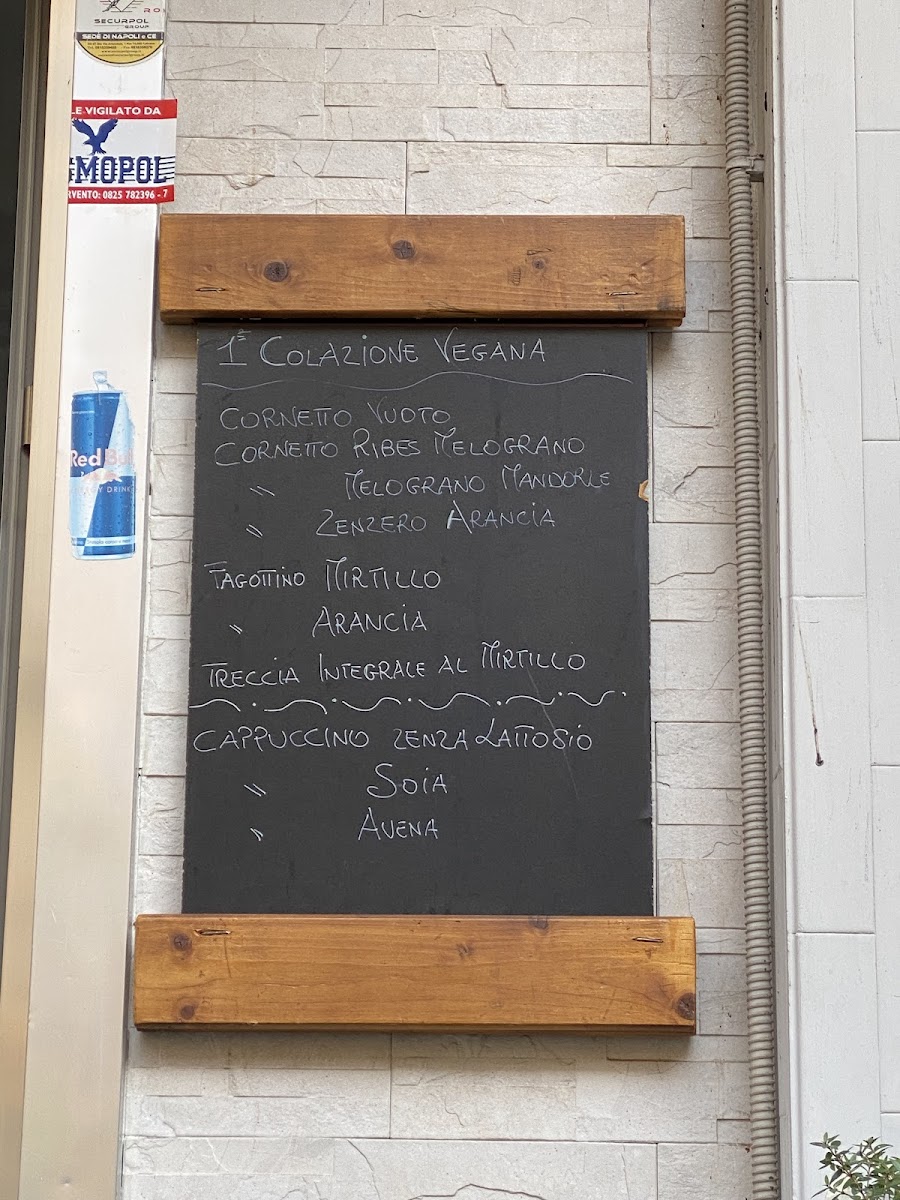 SECURPOL
GROUP
SEDE DI NAPOLI e CE
LE VIGILATO DA
MOPOL
RVENTO: 0825 782396 - 7
Red Bu
Y DRINK
1ª COLAZIONE VEGANA
CORNETTO VUOTO
CORNETTO RIBES MELOGRANO
" MELOGRANO MANDORLE
" ZENZERO ARANCIA
FAGOTTINO MIRTILLO
" ARANCIA
TRECCIA INTEGRALE AL MIRTILLO
CAPPUCCINO ZENZA LATTOSIO
" SOIA
" AVENA